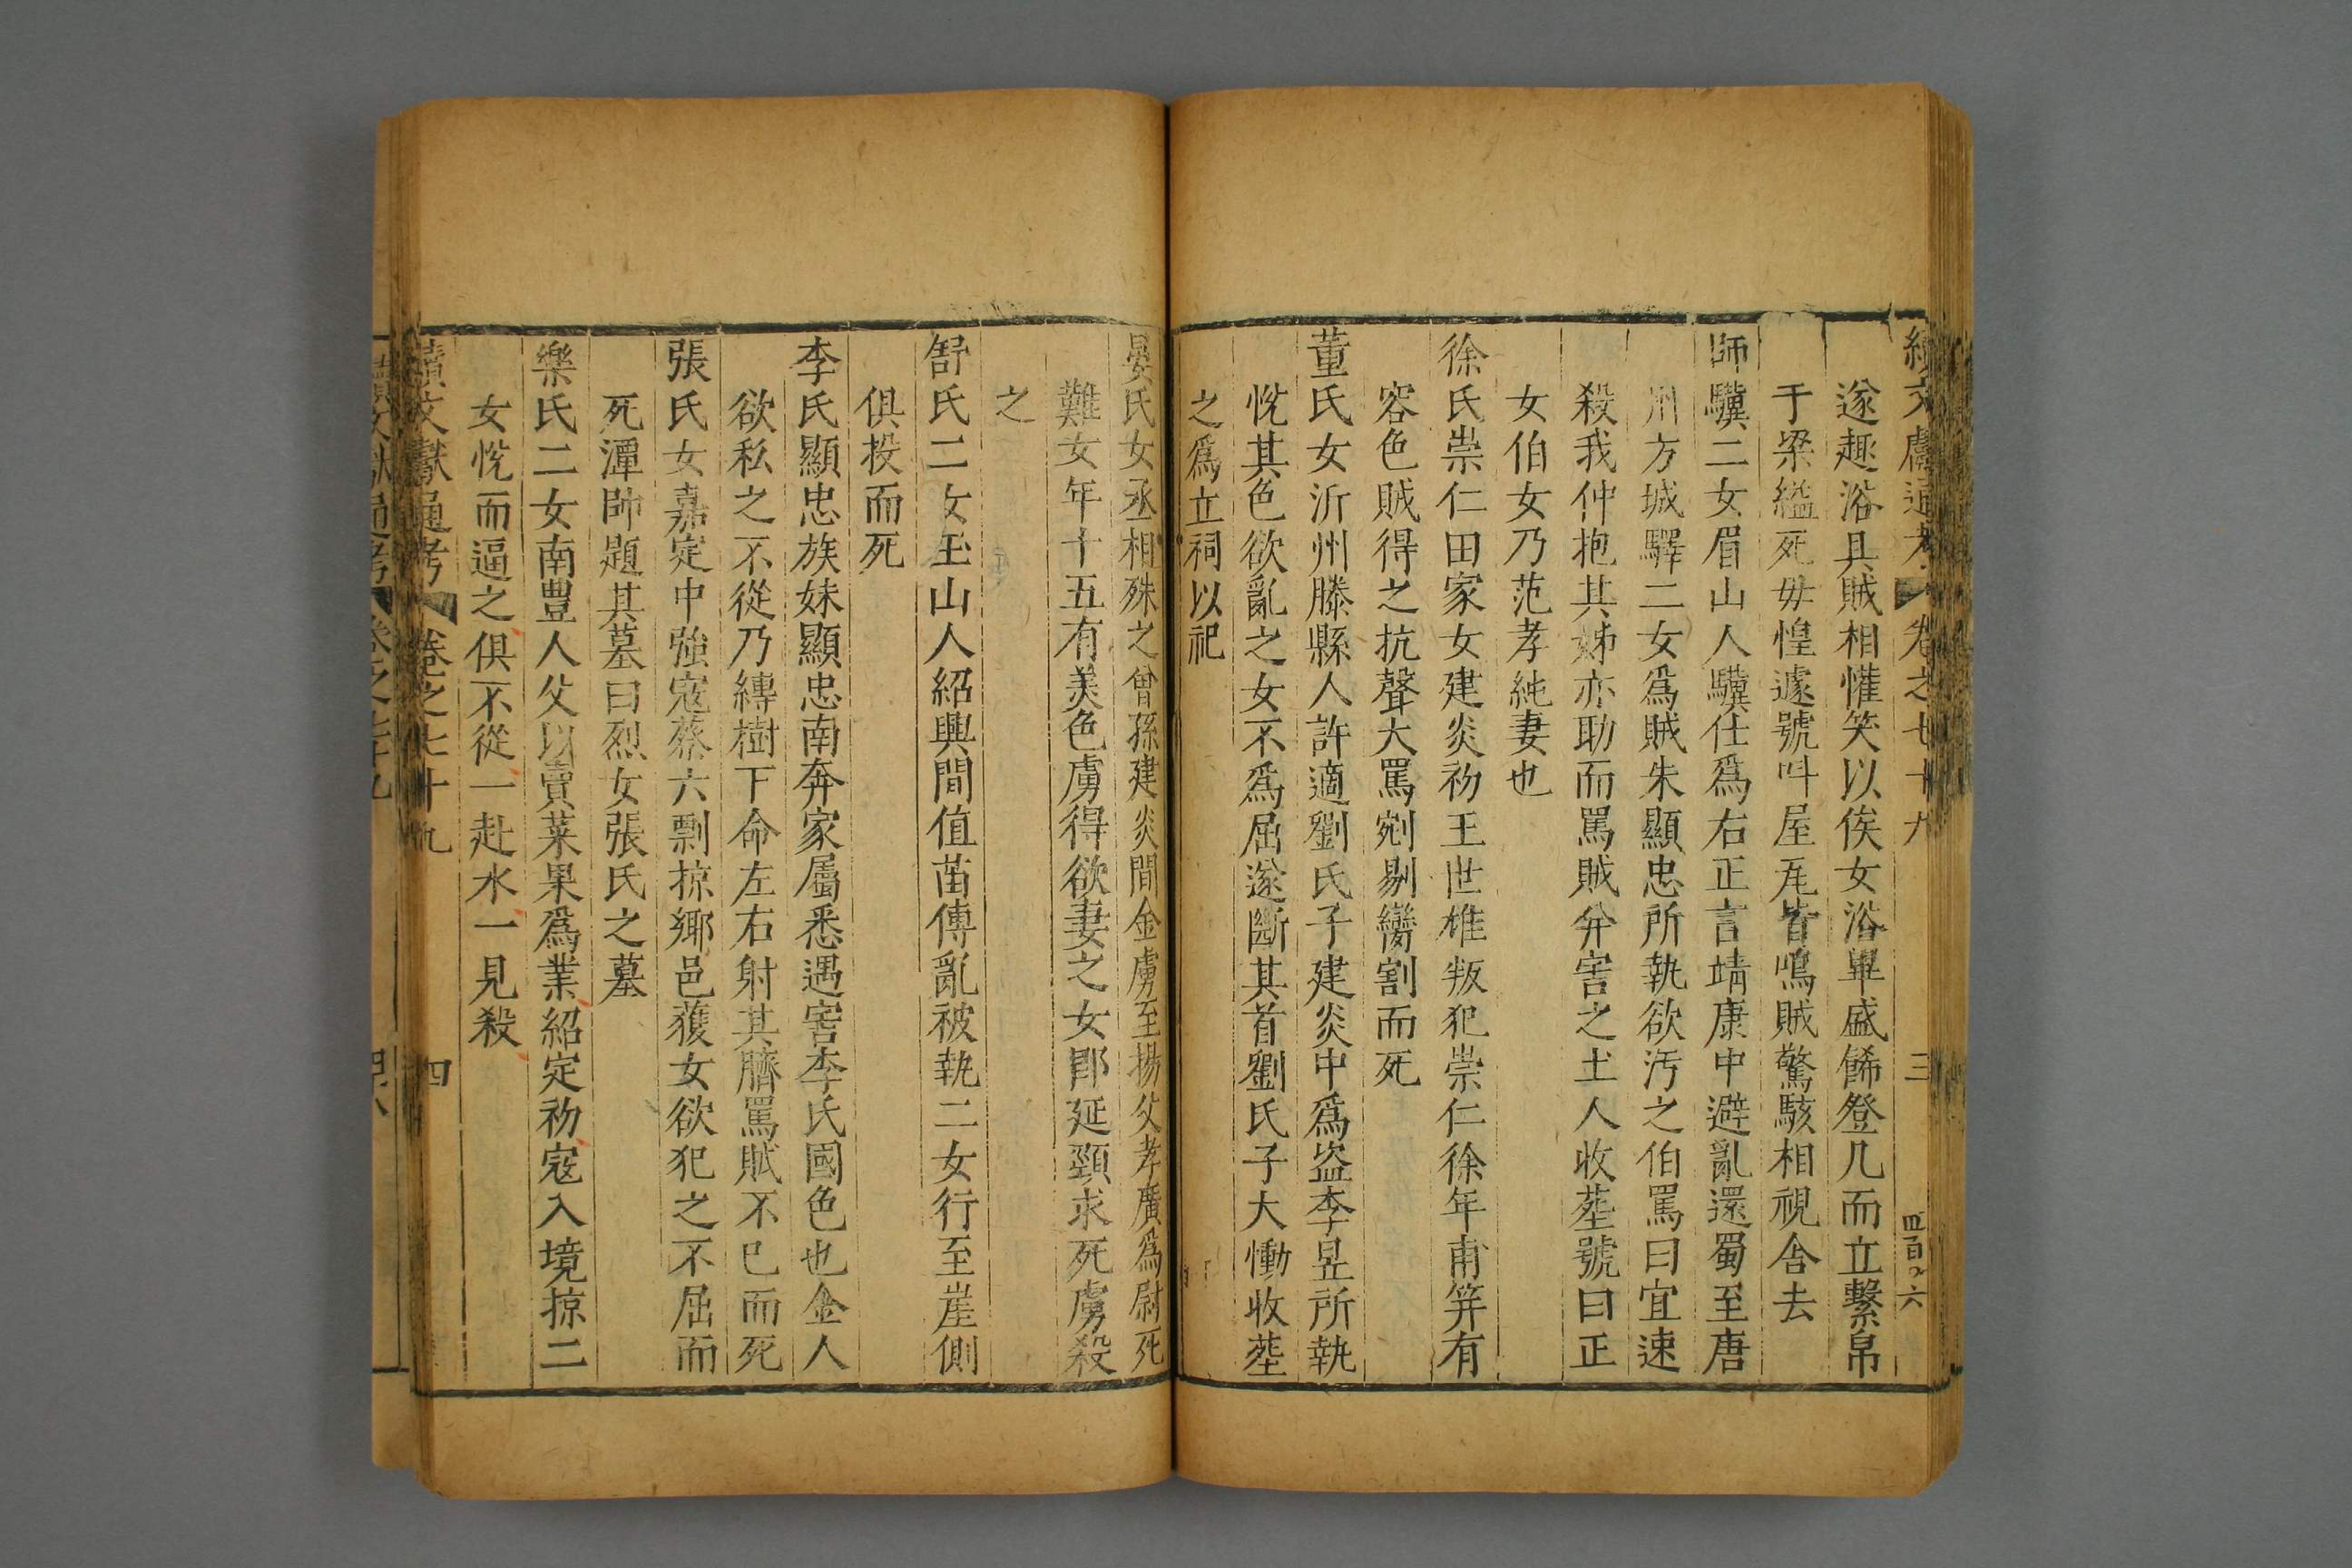 續文獻通考 卷之七十九 三 四百〻六
遂趣浴具賊相懽笑以俟女浴畢盛餙登几而立繫帛
于梁縊死毋惶遽號呌屋瓦皆鳴賊驚駭相視舍去
師驥二女眉山人驥仕爲右正言靖康中避亂還蜀至唐
州方城驛二女爲賊朱顯忠所執欲汚之伯罵曰宜速
殺我仲抱其姊亦助而罵賊并害之土人收塟號曰正
女伯女乃范孝純妻也
徐氏崇仁田家女建炎初王世雄叛犯崇仁徐年甫笄有
容色賊得之抗聲大罵剜剔臠割而死
董氏女沂州滕縣人許適劉氏子建炎中爲盗李昱所執
悅其色欲亂之女不爲屈遂斷其首劉氏子大慟收塟
之爲立祠以祀
晏氏女丞相殊之曾孫建炎間金虜至揚父孝廣爲尉死
難女年十五有美色虜得欲妻之女卽延頸求死虜殺
之
舒氏二女玉山人紹興間值苗傅亂被執二女行至崖側
俱投而死
李氏顯忠族妹顯忠南奔家屬悉遇害李氏國色也金人
欲私之不從乃縛樹下命左右射其臍罵賊不已而死
張氏女嘉定中強寇蔡六剽掠鄉邑獲女欲犯之不屈而
死潭帥題其墓曰烈女張氏之墓
樂氏二女南豊人父以賣菜果爲業紹定初寇入境掠二
女悅而逼之俱不從一赴水一見殺
續文獻通考 卷之七十九 四